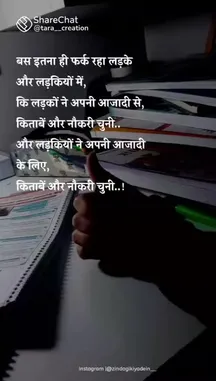 ShareChat
@tara__creation
बस इतना ही फर्क रहा लड़के
और लड़कियों में,
कि लड़कों ने अपनी आजादी से,
किताबें और नौकरी चुनी..
और लड़कियों ने अपनी आजादी
के लिए,
किताबें और नौकरी चुनी..!